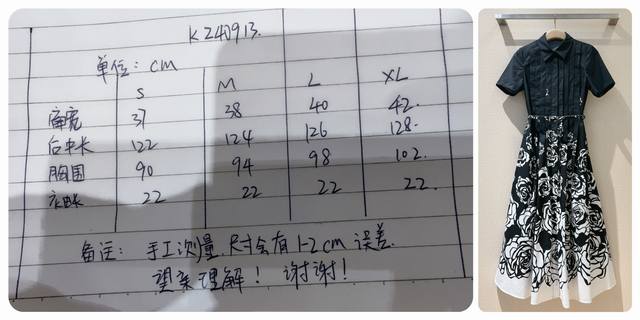 K240913.
单位: cm
S M L XL
肩宽 37 38 40 42.
后中长 122 124 126 128.
胸围 90 94 98 102.
袖长 22 22 22 22.
备注: 手工测量,尺寸会有1-2cm 误差.
望亲理解! 谢谢!